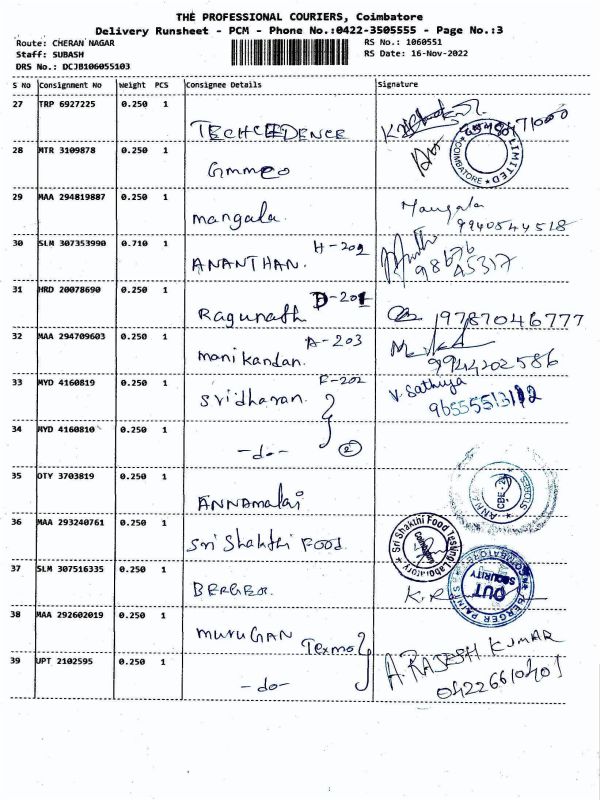 THE PROFESSIONAL COURIERS, Coimbatore
Delivery Runsheet - PCM - Phone No.:0422-3505555 - Page No.:3
Route: CHERAN NAGAR RS No.: 1060551
Staff: SUBASH RS Date: 16-Nov-2022
DRS No.: DCJB106055103
S No Consignment No Weight PCS Consignee Details Signature
27 TRP 6927225 0.250 1
TECHCEDENCE
28 MTR 3109878 0.250 1
Gmmco
COIMBATORE LIMITED
29 MAA 294819887 0.250 1
mangala. Mangala
9940544518
30 SLM 307353990 0.710 1 H-202
ANANTHAN. 98676
45317
31 HRD 20078690 0.250 1 D-201
Ragunath 9787046777
32 MAA 294709603 0.250 1 A-203
manikandan. 9944202586
33 MYD 4160819 0.250 1 F-202
Sridharan. V. Sathya
34 MYD 4160810 0.250 1
-do- 2
35 OTY 3703819 0.250 1
ANNAmalai
36 MAA 293240761 0.250 1
Sri Shakthi FOOD. Sri Shakthi Food Testing Laboratory
37 SLM 307516335 0.250 1
BERGER. BERGER PAINTS COIMBATORE
OUT
SECURITY
38 MAA 292602019 0.250 1
muruGAN Texmo
A. RAJESH KUMAR
39 UPT 2102595 0.250 1
-do- 04226610401